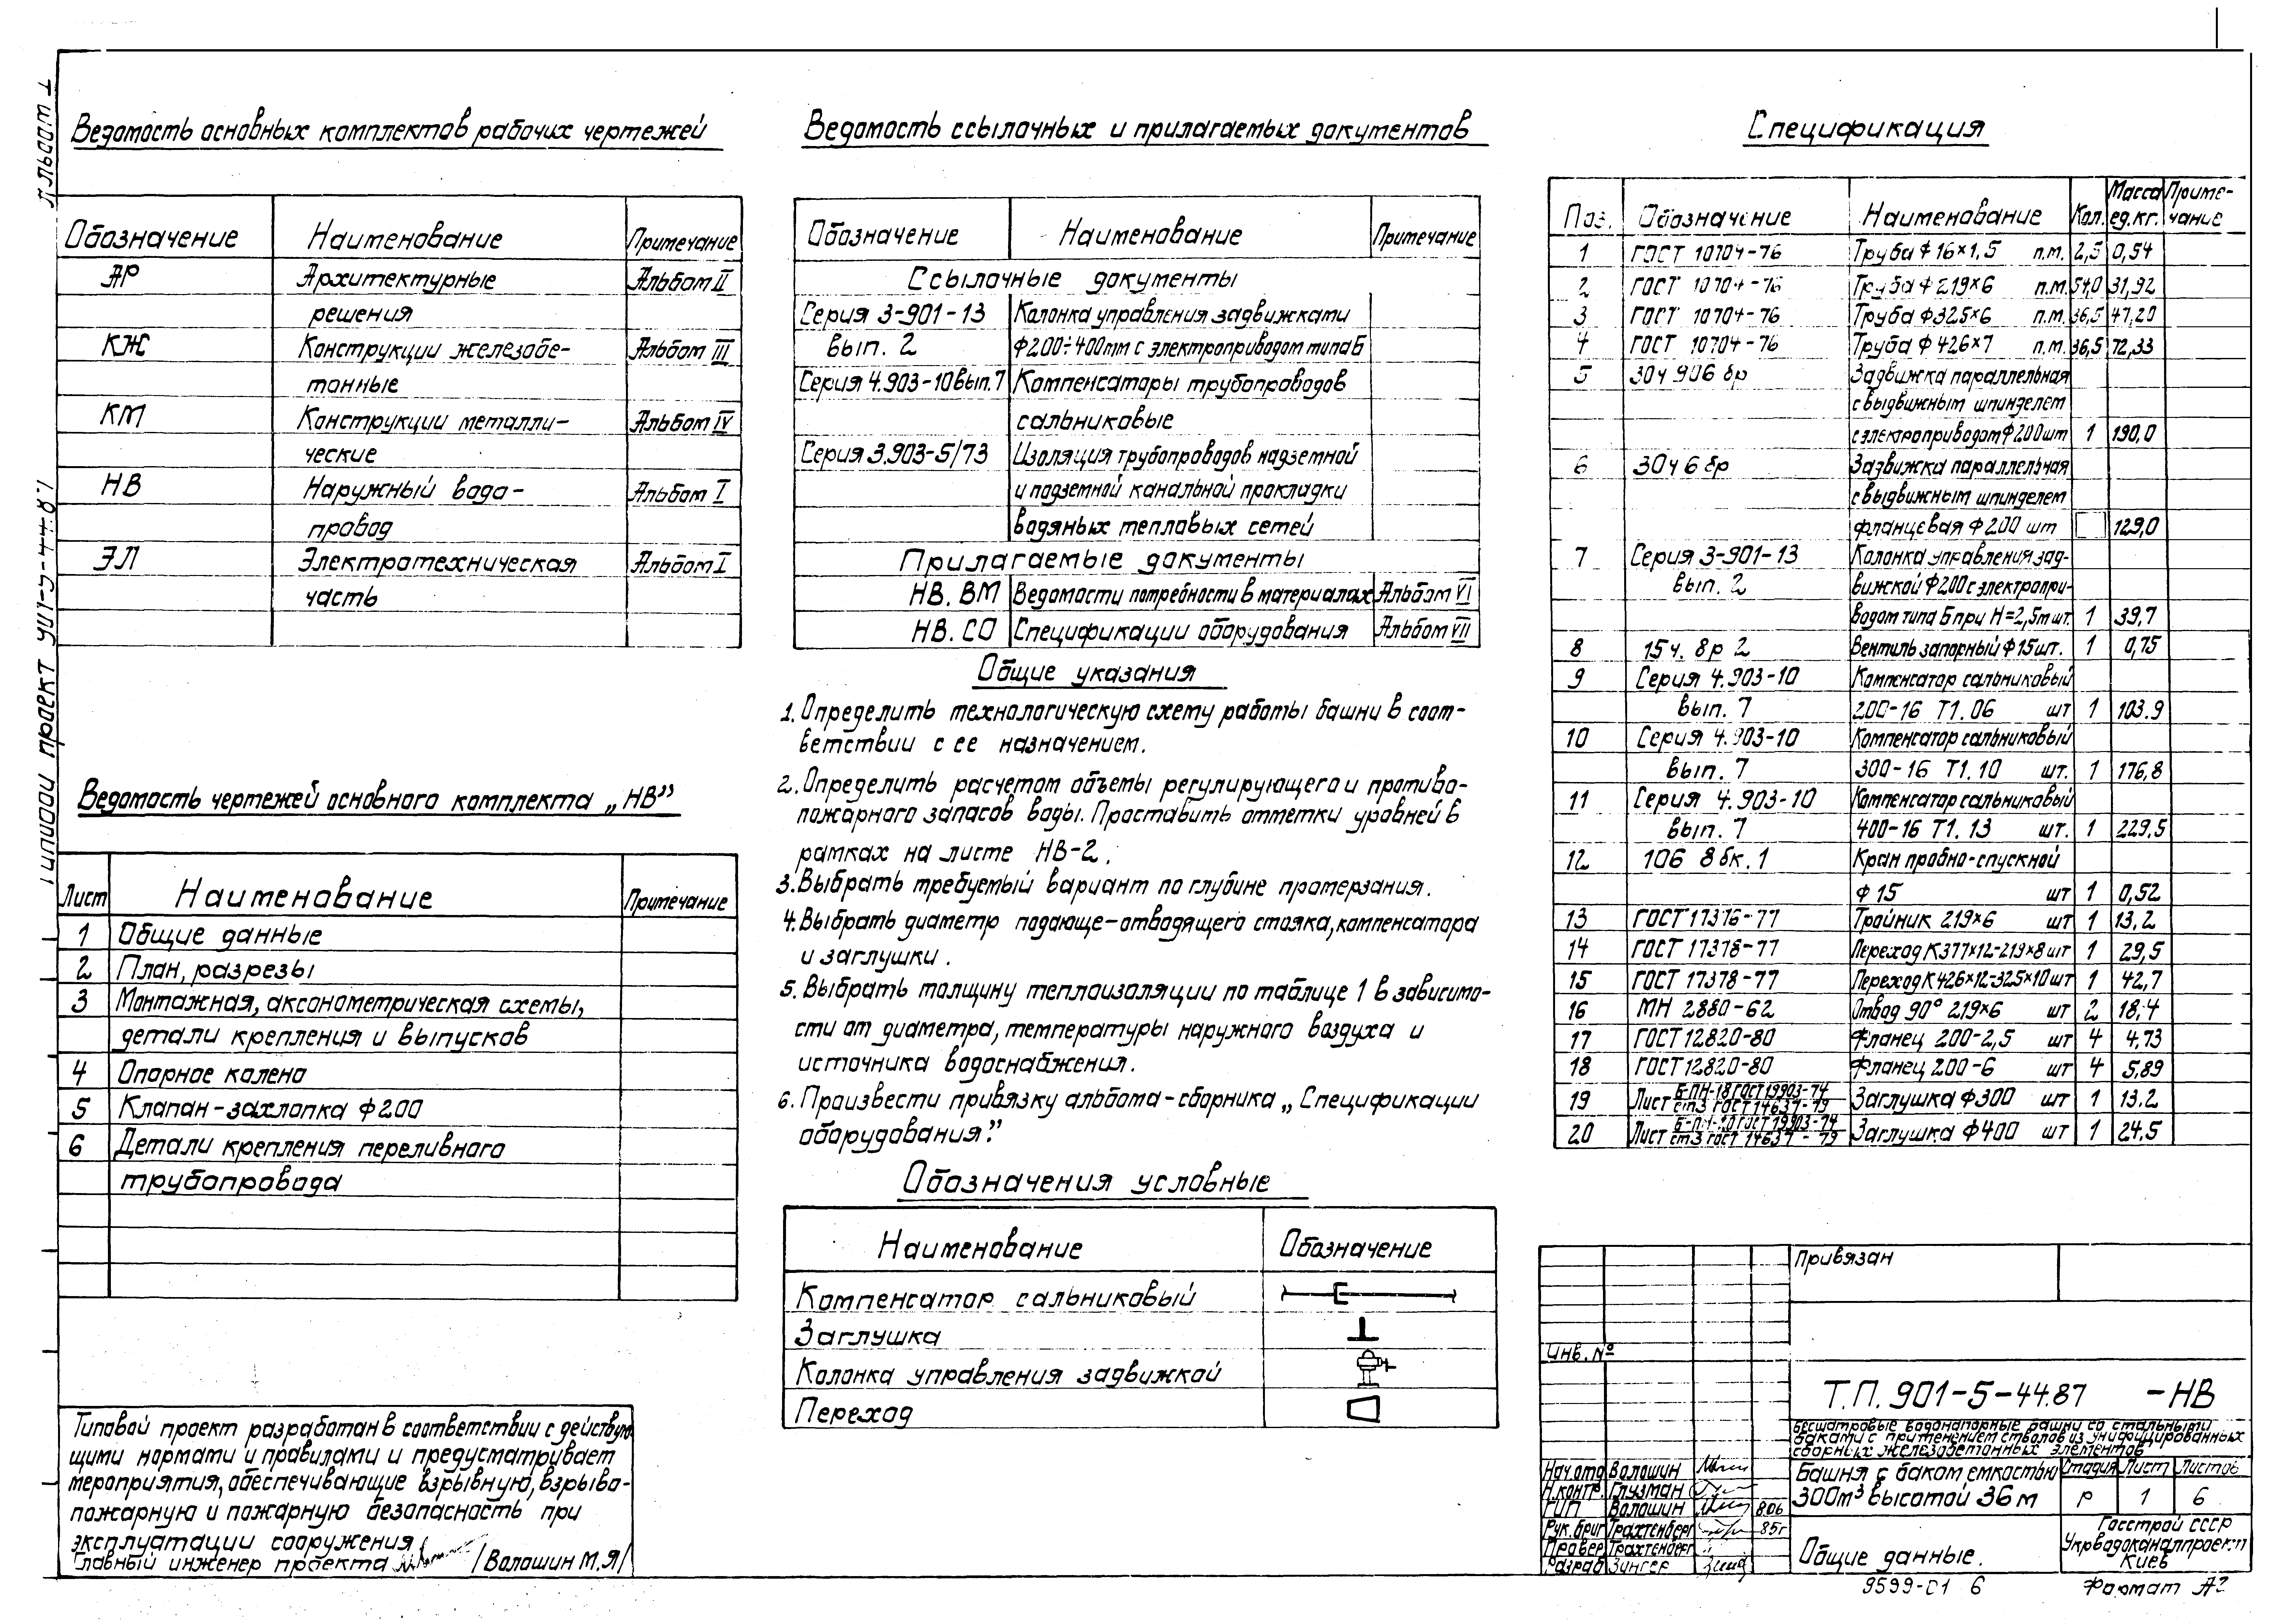 Альбом I
Типовой проект 901-5-44.87
Ведомость основных комплектов рабочих чертежей
Обозначение Наименование Примечание
АР Архитектурные Альбом II
решения
КЖ Конструкции железобе- Альбом III
тонные
КМ Конструкции металли- Альбом IV
ческие
НВ Наружный водо- Альбом I
провод
ЭЛ Электротехническая Альбом I
часть
Ведомость чертежей основного комплекта „НВ”
Лист Наименование Примечание
1 Общие данные
2 План, разрезы
3 Монтажная, аксонометрическая схемы,
детали крепления и выпусков
4 Опорное колено
5 Клапан-захлопка ф200
6 Детали крепления переливного
трубопровода
Типовой проект разработан в соответствии с действую-
щими нормами и правилами и предусматривает
мероприятия, обеспечивающие взрывную, взрыво-
пожарную и пожарную безопасность при
эксплуатации сооружения
Главный инженер проекта /Волошин М.Я/
Ведомость ссылочных и прилагаемых документов
Обозначение Наименование Примечание
Ссылочные документы
Серия 3-901-13 Колонка управления задвижками
вып. 2 ф200÷400мм с электроприводом типа Б
Серия 4.903-10 вып.7 Компенсаторы трубопроводов
сальниковые
Серия 3.903-5/73 Изоляция трубопроводов надземной
и подземной канальной прокладки
водяных тепловых сетей
Прилагаемые документы
НВ. ВМ Ведомости потребности в материалах Альбом VI
НВ. СО Спецификации оборудования Альбом VII
Общие указания
1. Определить технологическую схему работы башни в соот-
ветствии с ее назначением.
2. Определить расчетом объемы регулирующего и противо-
пожарного запасов воды. Проставить отметки уровней в
рамках на листе НВ-2.
3. Выбрать требуемый вариант по глубине промерзания.
4. Выбрать диаметр подающе-отводящего стояка, компенсатора
и заглушки.
5. Выбрать толщину теплоизоляции по таблице 1 в зависимо-
сти от диаметра, температуры наружного воздуха и
источника водоснабжения.
6. Произвести привязку альбома-сборника „Спецификации
оборудования”.
Обозначения условные
Наименование Обозначение
Компенсатор сальниковый
Заглушка
Колонка управления задвижкой
Переход
Спецификация
Поз. Обозначение Наименование Кол. Масса ед.кг. Приме-чание
1 ГОСТ 10704-76 Труба ф 16×1,5 п.м. 2,5 0,54
2 ГОСТ 10704-76 Труба ф 219×6 п.м. 54,0 31,92
3 ГОСТ 10704-76 Труба ф325×6 п.м. 36,5 47,20
4 ГОСТ 10704-76 Труба ф 426×7 п.м. 36,5 72,33
5 30ч 906 бр Задвижка параллельная
с выдвижным шпинделем
с электроприводом ф200 шт 1 190,0
6 30ч 6 бр Задвижка параллельная
с выдвижным шпинделем
фланцевая ф 200 шт 129,0
7 Серия 3-901-13 Колонка управления зад-
вып. 2 вижкой ф200 с электропри-
водом типа Б при Н=2,5м шт. 1 39,7
8 15ч. 8р 2 Вентиль запорный ф 15 шт. 1 0,75
9 Серия 4.903-10 Компенсатор сальниковый
вып. 7 200-16 Т1.06 шт 1 103.9
10 Серия 4.903-10 Компенсатор сальниковый
вып. 7 300-16 Т1.10 шт. 1 176,8
11 Серия 4.903-10 Компенсатор сальниковый
вып. 7 400-16 Т1.13 шт. 1 229,5
12 10б 8 бк. 1 Кран пробно-спускной
ф 15 шт 1 0,52
13 ГОСТ 17376-77 Тройник 219×6 шт 1 13.2
14 ГОСТ 17378-77 Переход К377×12-219×8 шт 1 29,5
15 ГОСТ 17378-77 Переход К426×12-325×10 шт 1 42,7
16 МН 2880-62 Отвод 90° 219×6 шт 2 18,4
17 ГОСТ 12820-80 Фланец 200-2,5 шт 4 4.73
18 ГОСТ 12820-80 Фланец 200-6 шт 4 5,89
19 Лист Б-ПН-18 ГОСТ 19903-74 / ст3 ГОСТ 14637-79 Заглушка ф300 шт 1 13.2
20 Лист Б-ПН-20 ГОСТ 19903-74 / ст3 ГОСТ 14637-79 Заглушка ф400 шт 1 24,5
Привязан
Инв. №
Т.П. 901-5-44.87 -НВ
Бесшатровые водонапорные башни со стальными
баками с применением стволов из унифицированных
сборных железобетонных элементов
Нач.отд Волошин
Н.контр. Глузман
ГИП Волошин 8.06
Рук.бриг Трахтенберг 85г
Провер Трахтенберг
Разраб Зингер
Башня с баком емкостью
300м³ высотой 36м
Стадия Лист Листов
Р 1 6
Общие данные.
Госстрой СССР
Укрводоканалпроект
Киев
9599-01 6
Формат А2